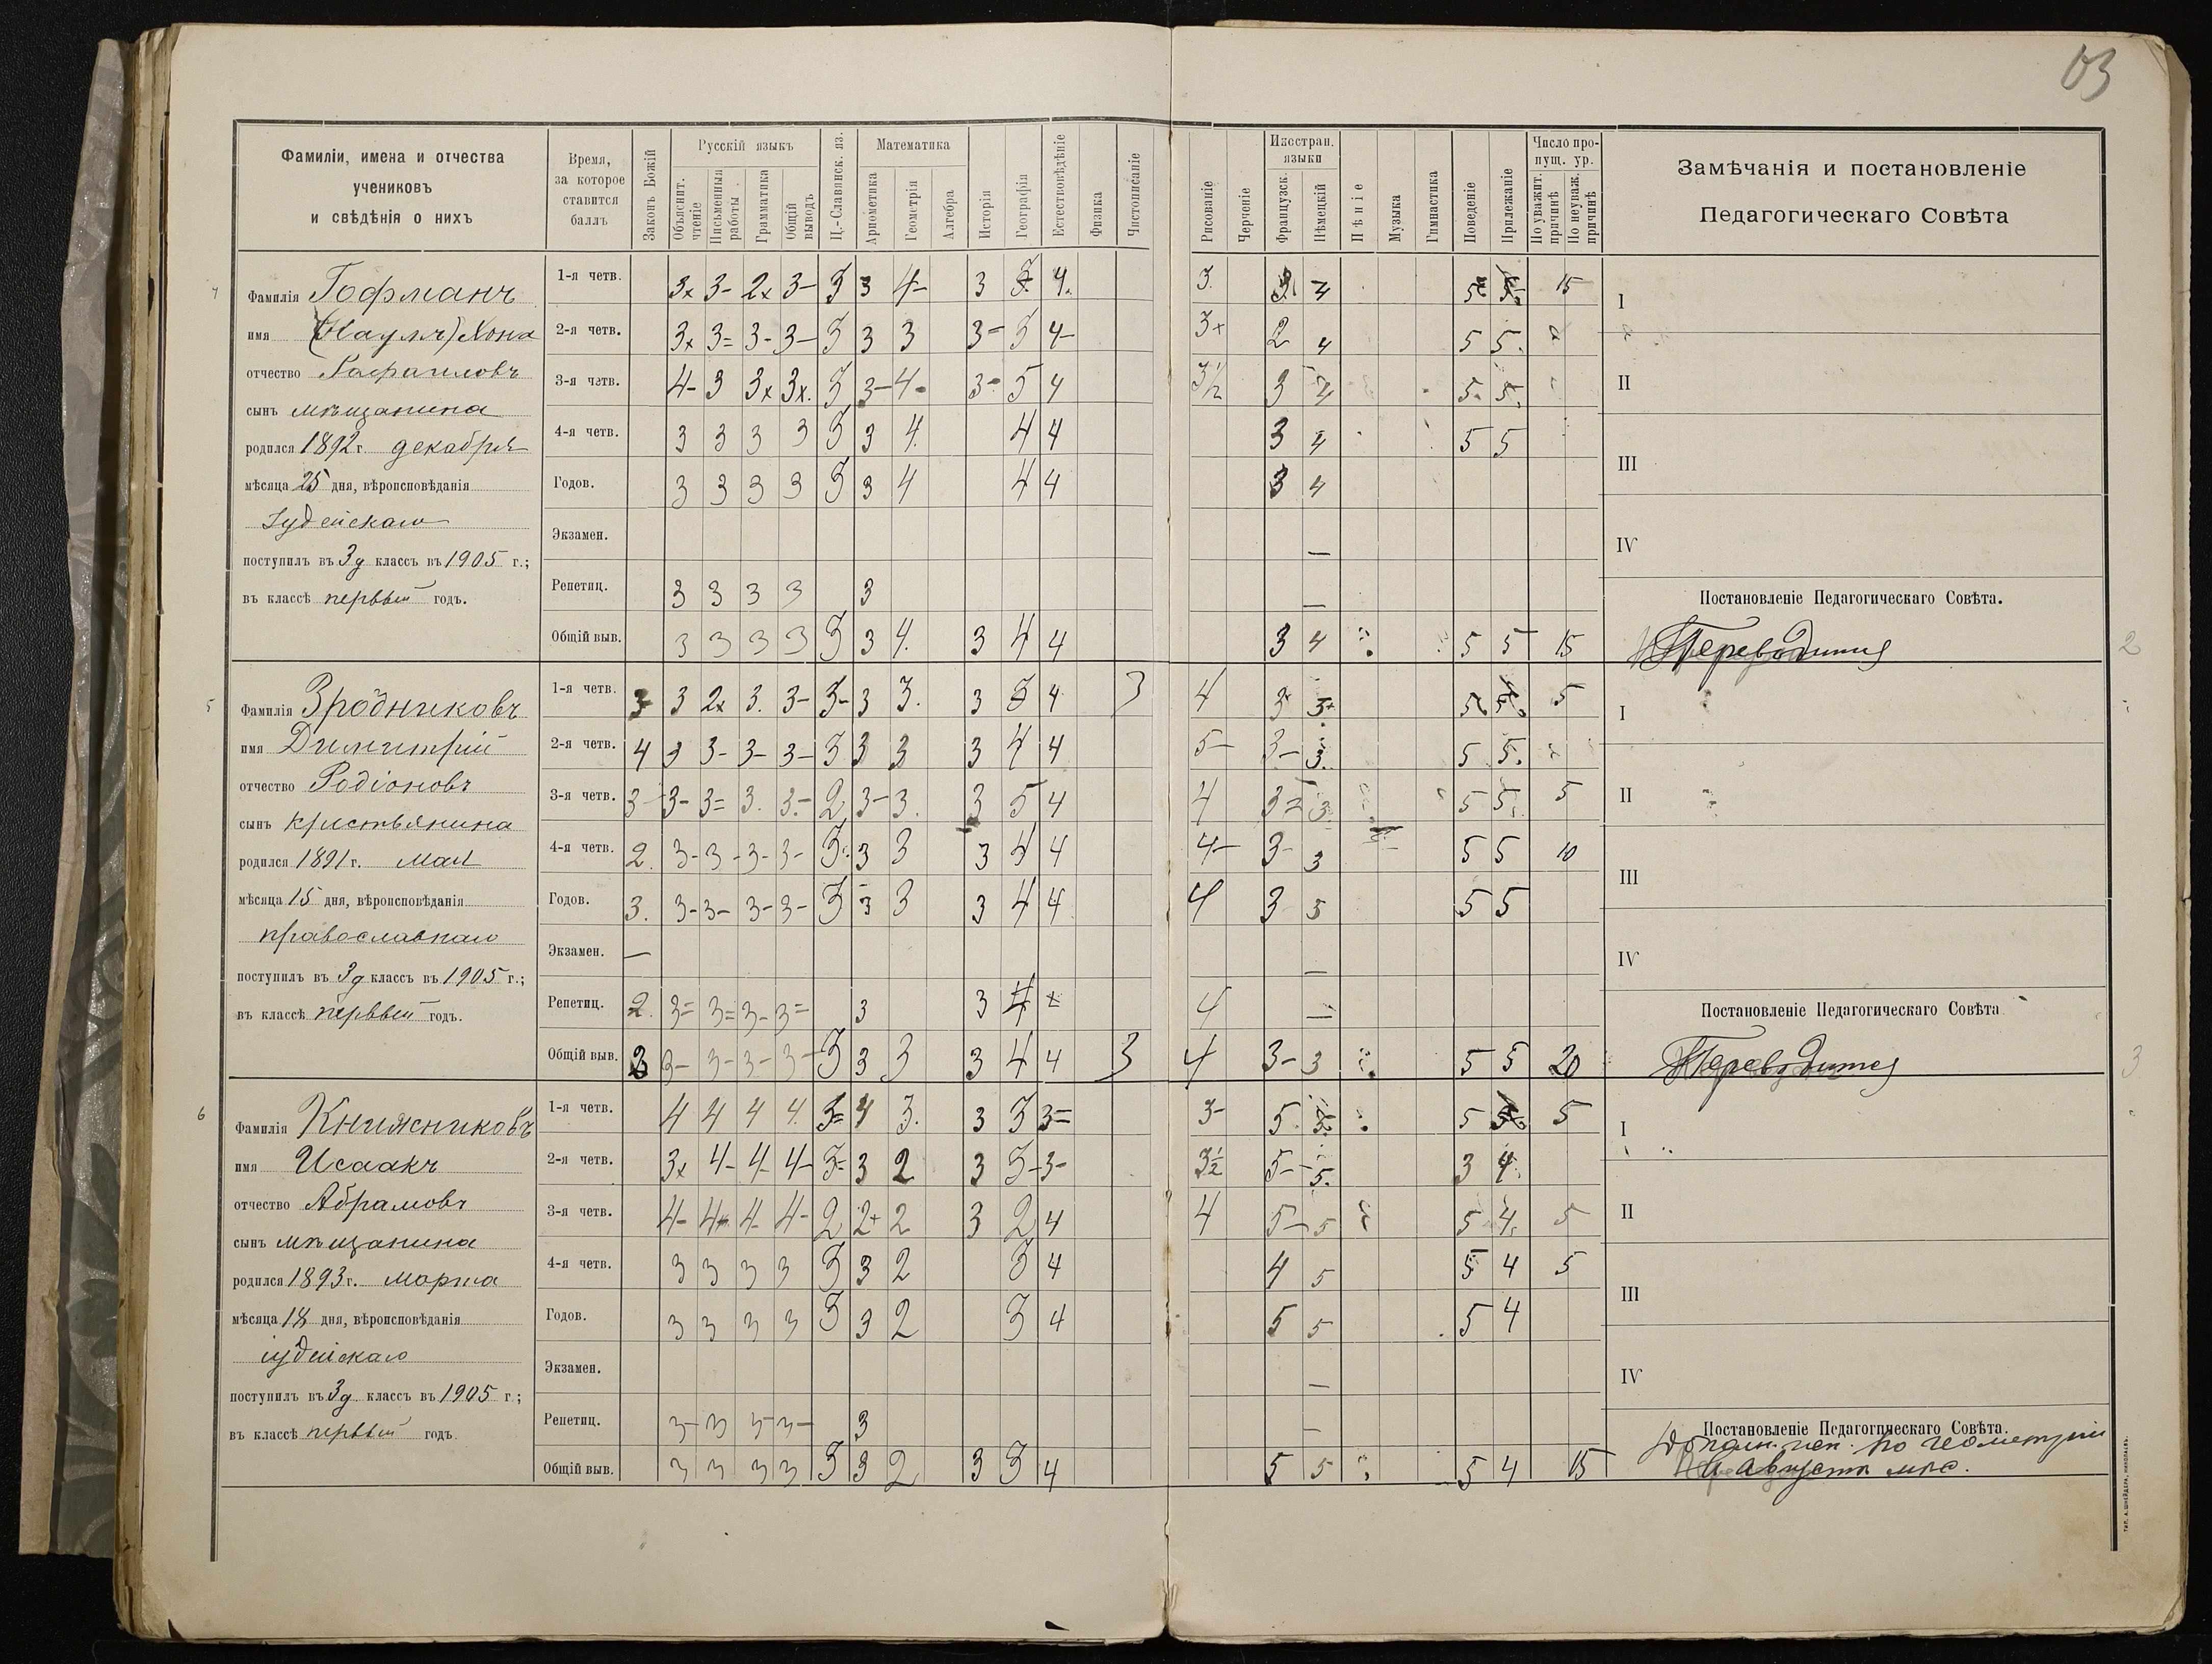 03
Фамиліи, имена и отчества
учениковъ
и свѣдѣнія о нихъ
Время,
за которое
ставится
баллъ
Законъ Божій
Русскій языкъ
Объяснит. чтеніе
Письменныя работы
Грамматика
Общій выводъ
Ц.-Славянск. яз.
Математика
Ариѳметика
Геометрія
Алгебра
Исторія
Географія
Естествовѣдѣніе
Физика
Чистописаніе
Рисованіе
Черченіе
Иностран. языки
Французск.
Нѣмецкій
Пѣніе
Музыка
Гимнастика
Поведеніе
Прилежаніе
Число пропущ. ур.
По уважит. причинѣ
По неуваж. причинѣ
Замѣчанія и постановленіе
Педагогическаго Совѣта
Фамилія Гофманъ
имя (Наумъ) Хона
отчество Рафаиловъ
сынъ мѣщанина
родился 1892 г. декабря
мѣсяца 25 дня, вѣроисповѣданія
Іудейскаго
поступилъ въ 3д классъ въ 1905 г.;
въ классѣ первый годъ.
1-я четв. 3× 3- 2× 3- 3 3 4- 3 3 4. 3. 3. 4 5 5 15
2-я четв. 3× 3= 3- 3- 3 3 3 3- 5 4- 3+ 2 4 5 5.
3-я четв. 4- 3 3× 3×. 3 3- 4- 3- 5 4 3½ 3 4 5 5.
4-я четв. 3 3 3 3 3 3 4. 4 4 3 4 5 5
Годов. 3 3 3 3 3 3 4 4 4 3 4
Экзамен. —
Репетиц. 3 3 3 3 3 —
Общій выв. 3 3 3 3 3 3 4. 3 4 4 3 4 5 5 15
I
II
III
IV
Постановленіе Педагогическаго Совѣта.
Переводится
2
5
Фамилія Зродниковъ
имя Димитрій
отчество Родіоновъ
сынъ крестьянина
родился 1891 г. Мая
мѣсяца 15 дня, вѣроисповѣданія
православнаго
поступилъ въ 3д классъ въ 1905 г.;
въ классѣ первый годъ.
1-я четв. 3 3 2× 3. 3- 3- 3 3. 3 3 4 3 4 3 3+ 5 5 5
2-я четв. 4 3 3- 3- 3- 3 3 3 3 4 4 5- 3- 3. 5 5.
3-я четв. 3- 3- 3= 3. 3.- 2 3- 3. 3 5 4 4 3= 3 5 5. 5
4-я четв. 2. 3- 3- 3- 3- 3. 3 3 3 4 4 4- 3- 3 5 5 10
Годов. 3. 3- 3- 3- 3- 3 3 3 3 4 4 4 3 3 5 5
Экзамен. — —
Репетиц. 2. 3= 3= 3- 3= 3 3 4 4 —
Общій выв. 3 3- 3- 3- 3- 3 3 3 3 4 4 3 4 3- 3 5 5 20
I
II
III
IV
Постановленіе Педагогическаго Совѣта
Переводится
3
6
Фамилія Книжниковъ
имя Исаакъ
отчество Абрамовъ
сынъ мѣщанина
родился 1893 г. марта
мѣсяца 18 дня, вѣроисповѣданія
іудейскаго
поступилъ въ 3д классъ въ 1905 г.;
въ классѣ первый годъ.
1-я четв. 4 4 4 4. 3= 4 3. 3 3 3= 3- 5. 3. 5 5 5
2-я четв. 3× 4- 4- 4- 3- 3 2 3 3- 3- 3½ 5- 5. 3 4.
3-я четв. 4- 4- 4- 4- 2 2+ 2 3 2 4 4 5- 5 5 4. 5
4-я четв. 3 3 3 3 3 3 2 3 4 4 5 5 4 5
Годов. 3 3 3 3 3 3 2 3 4 5 5 5 4
Экзамен. —
Репетиц. 3- 3 3- 3- 3 —
Общій выв. 3 3 3 3 3 3 2 3 3 4 5 5 5 4 15
I
II
III
IV
Постановленіе Педагогическаго Совѣта.
Дополн. исп. по геометріи
августа
тип. а. шнейдера, николаевъ.